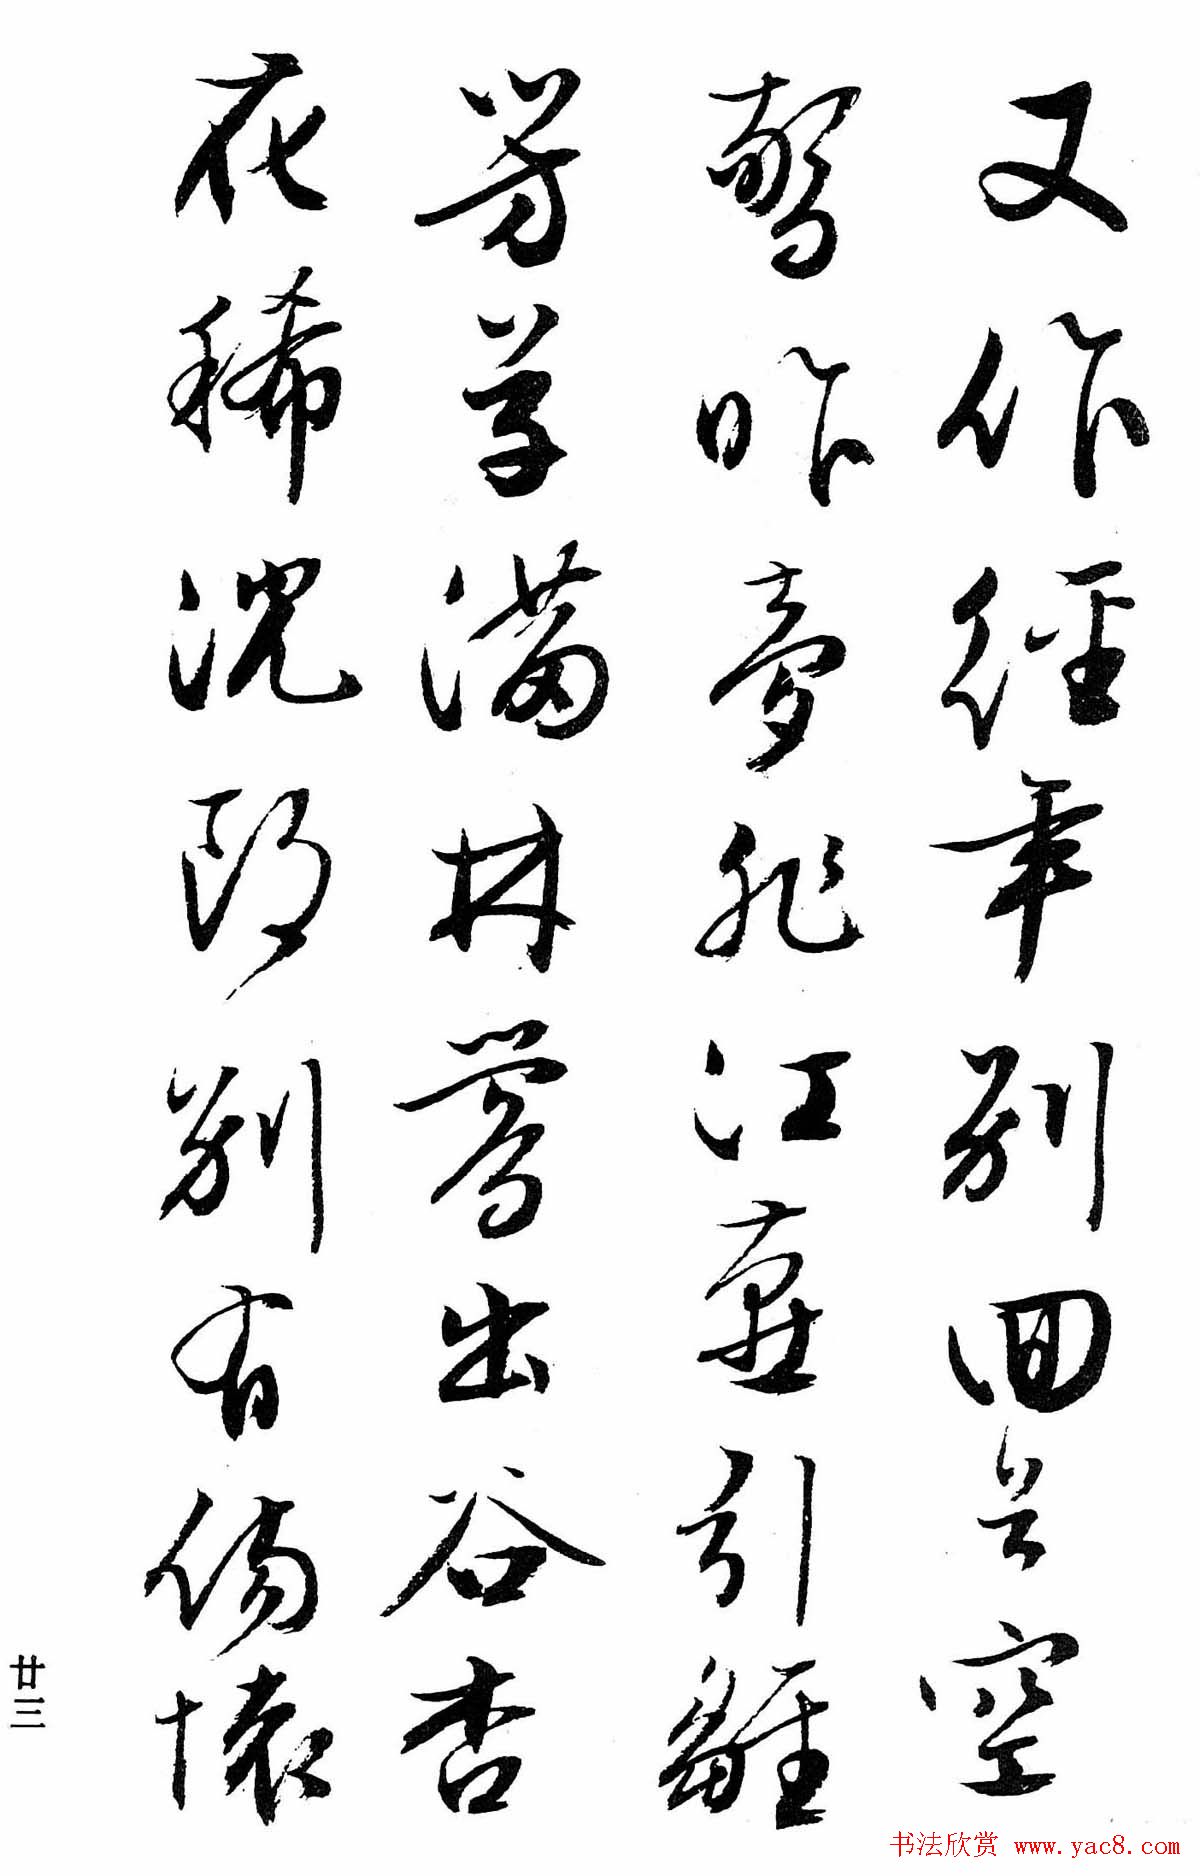 又作經年別回首空
驚昨夢非江燕引雛
芳草滿林鶯出谷杏
花稀況別有傷懷
廿三
书法欣赏 www.yac8.com